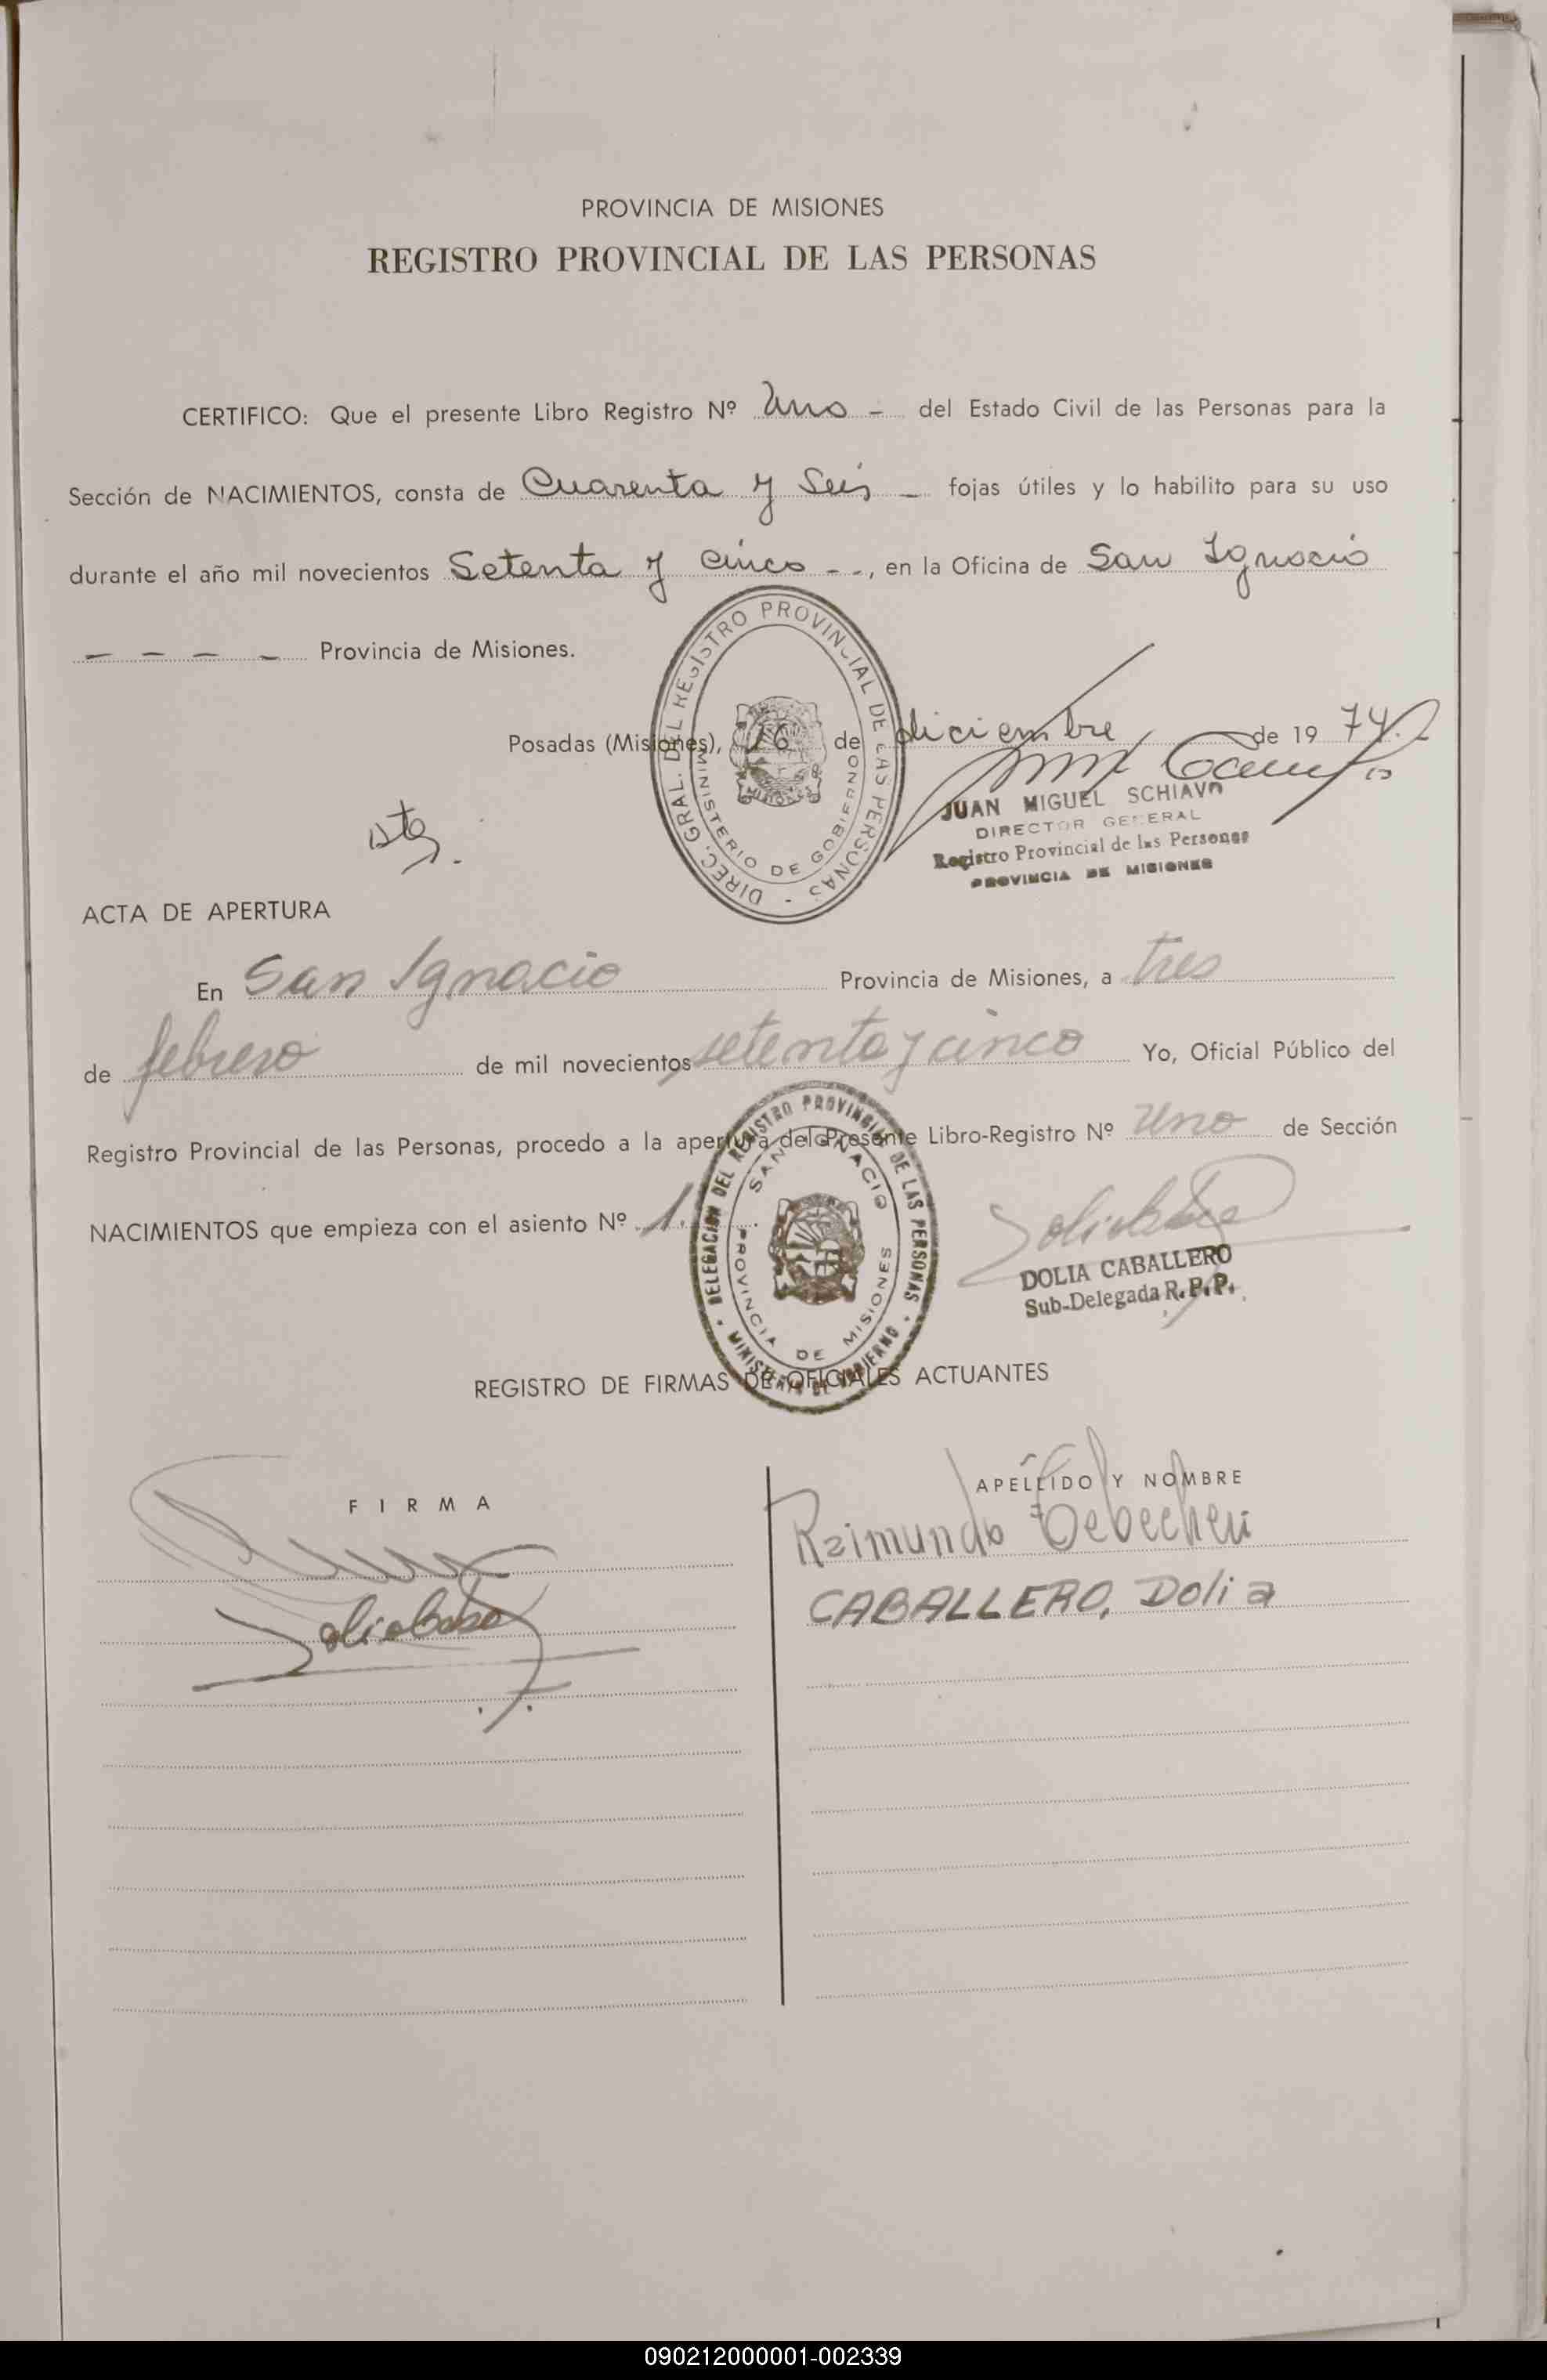 PROVINCIA DE MISIONES
REGISTRO PROVINCIAL DE LAS PERSONAS
CERTIFICO: Que el presente Libro Registro Nº Uno - del Estado Civil de las Personas para la
Sección de NACIMIENTOS, consta de Cuarenta y Seis - fojas útiles y lo habilito para su uso
durante el año mil novecientos Setenta y cinco - -, en la Oficina de San Ignacio
- - - - Provincia de Misiones.
DIREC. GRAL. DEL REGISTRO PROVINCIAL DE LAS PERSONAS -
MINISTERIO DE GOBIERNO
MISIONES
Posadas (Misiones), 16 de diciembre de 1974.
JUAN MIGUEL SCHIAVO
DIRECTOR GENERAL
Registro Provincial de las Personas
PROVINCIA DE MISIONES
ACTA DE APERTURA
En San Ignacio Provincia de Misiones, a tres
de febrero de mil novecientos setenta y cinco Yo, Oficial Público del
Registro Provincial de las Personas, procedo a la apertura del Presente Libro-Registro Nº Uno de Sección
NACIMIENTOS que empieza con el asiento Nº 1.
DELEGACION DEL REGISTRO PROVINCIAL DE LAS PERSONAS
MINISTERIO DE GOBIERNO
SAN IGNACIO
PROVINCIA DE MISIONES
DOLIA CABALLERO
Sub-Delegada R.P.P.
REGISTRO DE FIRMAS DE OFICIALES ACTUANTES
FIRMA
APELLIDO Y NOMBRE
Raimundo
CABALLERO, Dolia
090212000001-002339